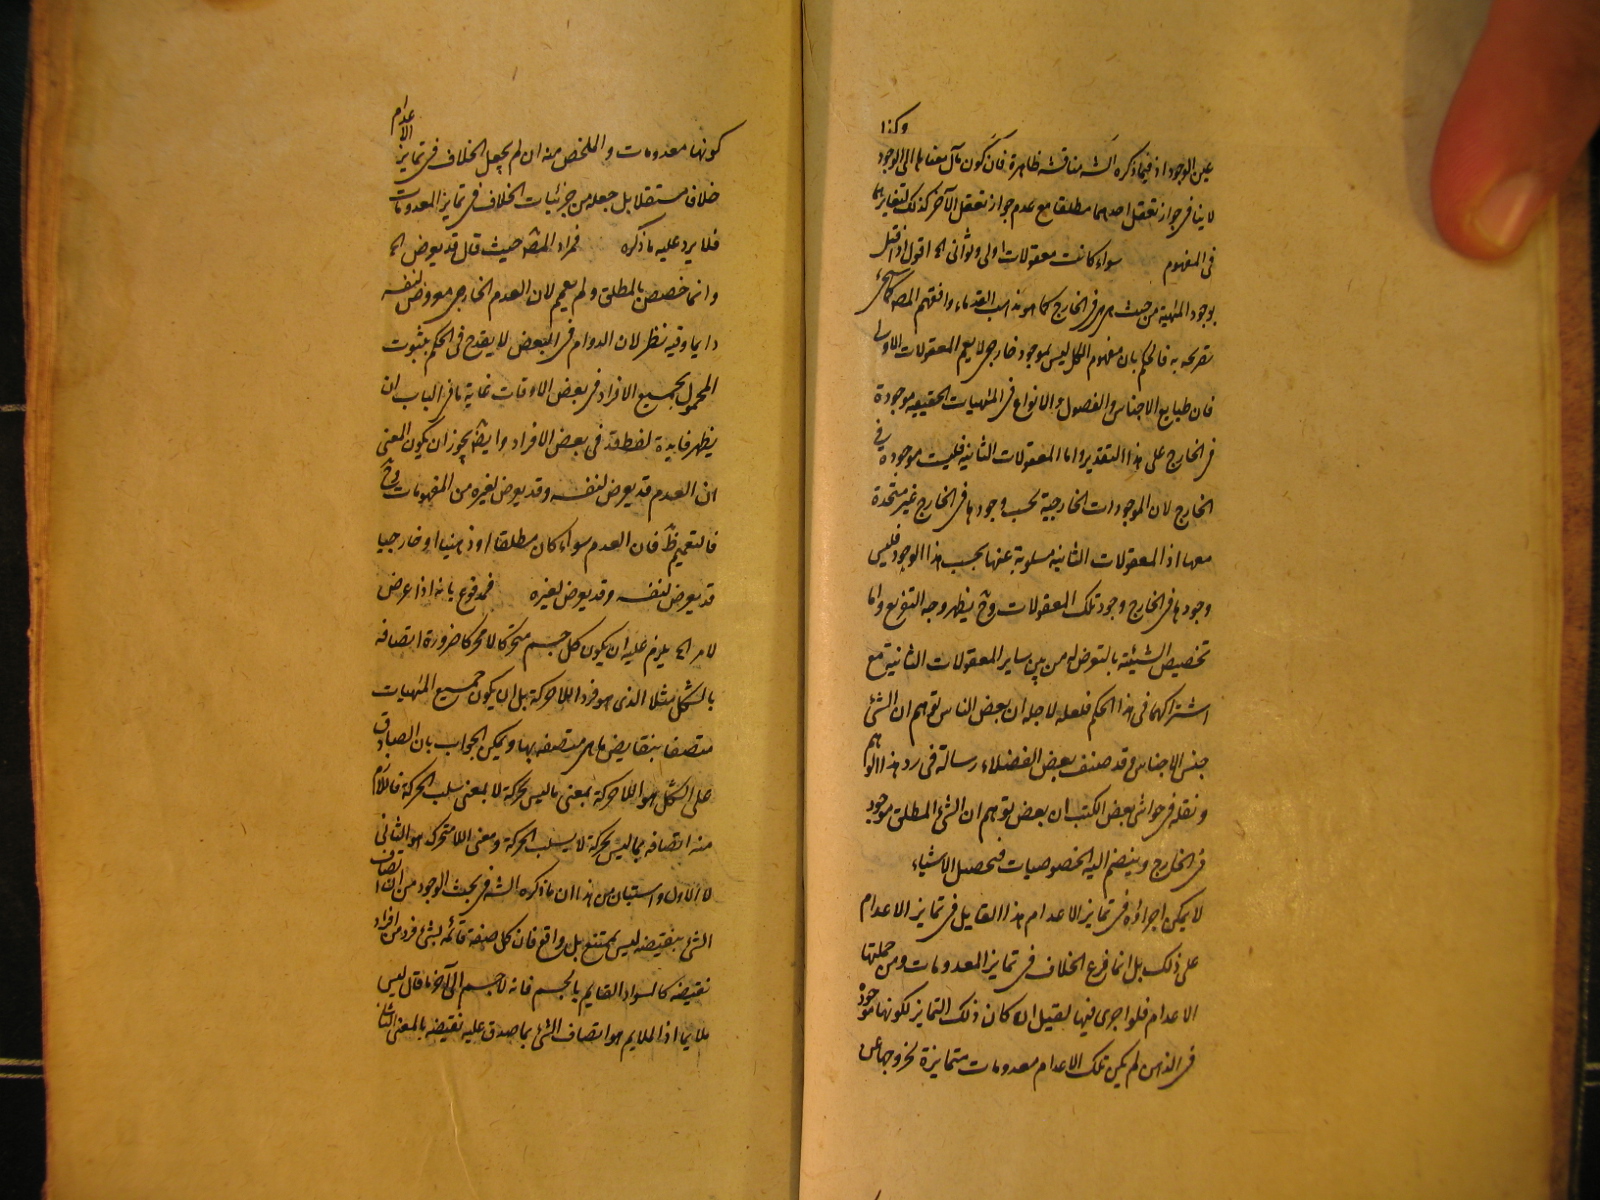 وكذا
عين الوجود اذ فيما ذكره الشـ مناقشة ظاهرة فان كون مآل معناها الى الوجود
لا ينافى جواز تعقل احدهما مطلقا مع عدم جواز تعقل الآخر كذلك لتغايرهما
فى المفهوم سواء كانت معقولات اولى وثوانى الخ اقول اذا قيل
بوجود المهية من حيث هى فى الخارج كما هو مذهب القدماء وافقهم المصـ كما سيجئ
تصريحه به فالحكم بان مفهوم الكل ليس بموجود خارجى لا يعم المعقولات الاولى
فان طبايع الاجناس والفصول والانواع فى المهيات الحقيقيه موجودة
فى الخارج على هذا التقدير واما المعقولات الثانيه فليست موجودة فى
الخارج لان الموجودات الخارجية بحسب وجودها فى الخارج غير متحدة
معها اذ المعقولات الثانيه مسلوبة عنها بحسب هذا الوجود فليس
وجودها فى الخارج وجود تلك المعقولات وح يظهر وجه التفريع واما
تخصيص الشيئية بالتعرض له من بين ساير المعقولات الثانية مع
اشتراكهما فى هذا الحكم فلعله لاجل ان بعض الناس توهم ان الشئ
جنس الاجناس وقد صنف بعض الفضلاء رسالة فى رد هذا الوهم
ونقله فى حواشى بعض الكتب ان بعض توهم ان الشئ المطلق موجود
فى الخارج وينضم اليه الخصوصيات فتحصل الاشياء
لا يمكن اجراؤه فى تمايز الاعدام هذا القايل فى تمايز الاعدام
على ذلك بل انما فرع الخلاف فى تمايز المعدومات ومن جملتها
الاعدام فلو اجرى فيها لقيل ان كان ذلك التمايز لكونها موجود
فى الذهن لم يكن تلك الاعدام معدومات متمايزة لخروجها عن
كونها معدومات والملخص منه ان لم يجعل الخلاف فى تمايز الاعدام
خلافا مستقلا بل جعله من جزئيات الخلاف فى تمايز المعدومات
فلا يرد عليه ما ذكره فمراد المصـ حيث قال قد يعرض الخ
وانما خصص بالمطلق ولم يعمم لان العدم الخارجى معروض لنفسه
دايما وفيه نظر لان الدوام فى البعض لا يقدح فى الحكم بثبوت
المحمول لجميع الافراد فى بعض الاوقات غاية ما فى الباب ان
يظهر فايدة لفظة قد فى بعض الافراد وايضا يجوز ان يكون المعنى
ان العدم قد يعرض لنفسه وقد يعرض لغيره من المفهومات وح
فالتعميم ظ فان العدم سواء كان مطلقا او ذهنيا او خارجيا
قد يعرض لنفسه وقد يعرض لغيره فمدفوع بانه اذا عرض
لامر الخ يلزم عليه ان يكون كل جسم متحركا لا متحركا ضرورة اتصافه
بالشكل مثلا الذى هو فرد اللاحركة بل ان يكون جميع المهيات
متصفا بنقايض ما هى متصفه بها ويمكن الجواب بان الصادق
على الشكل هو اللاحركة بمعنى ما ليس بحركة لا بمعنى سلب الحركة فاللازم
منه اتصافه بما ليس بحركة لا بسلب الحركة ومعنى اللامتحرك هو الثانى
لا الاول واستبان من هذا ان ما ذكره الشـ فى بحث الوجود من ان اتصاف
الشئ بنقيضه ليس بممتنع بل واقع فان كل صفة قائمة بشئ فرد من افراد
نقيضه كالسواد القايم بالجسم فانه لا جسم الى آخر ما قال ليس
ملايما اذ الملايم هو اتصاف الشئ بما صدق عليه نقيضه بالمعنى الثانى